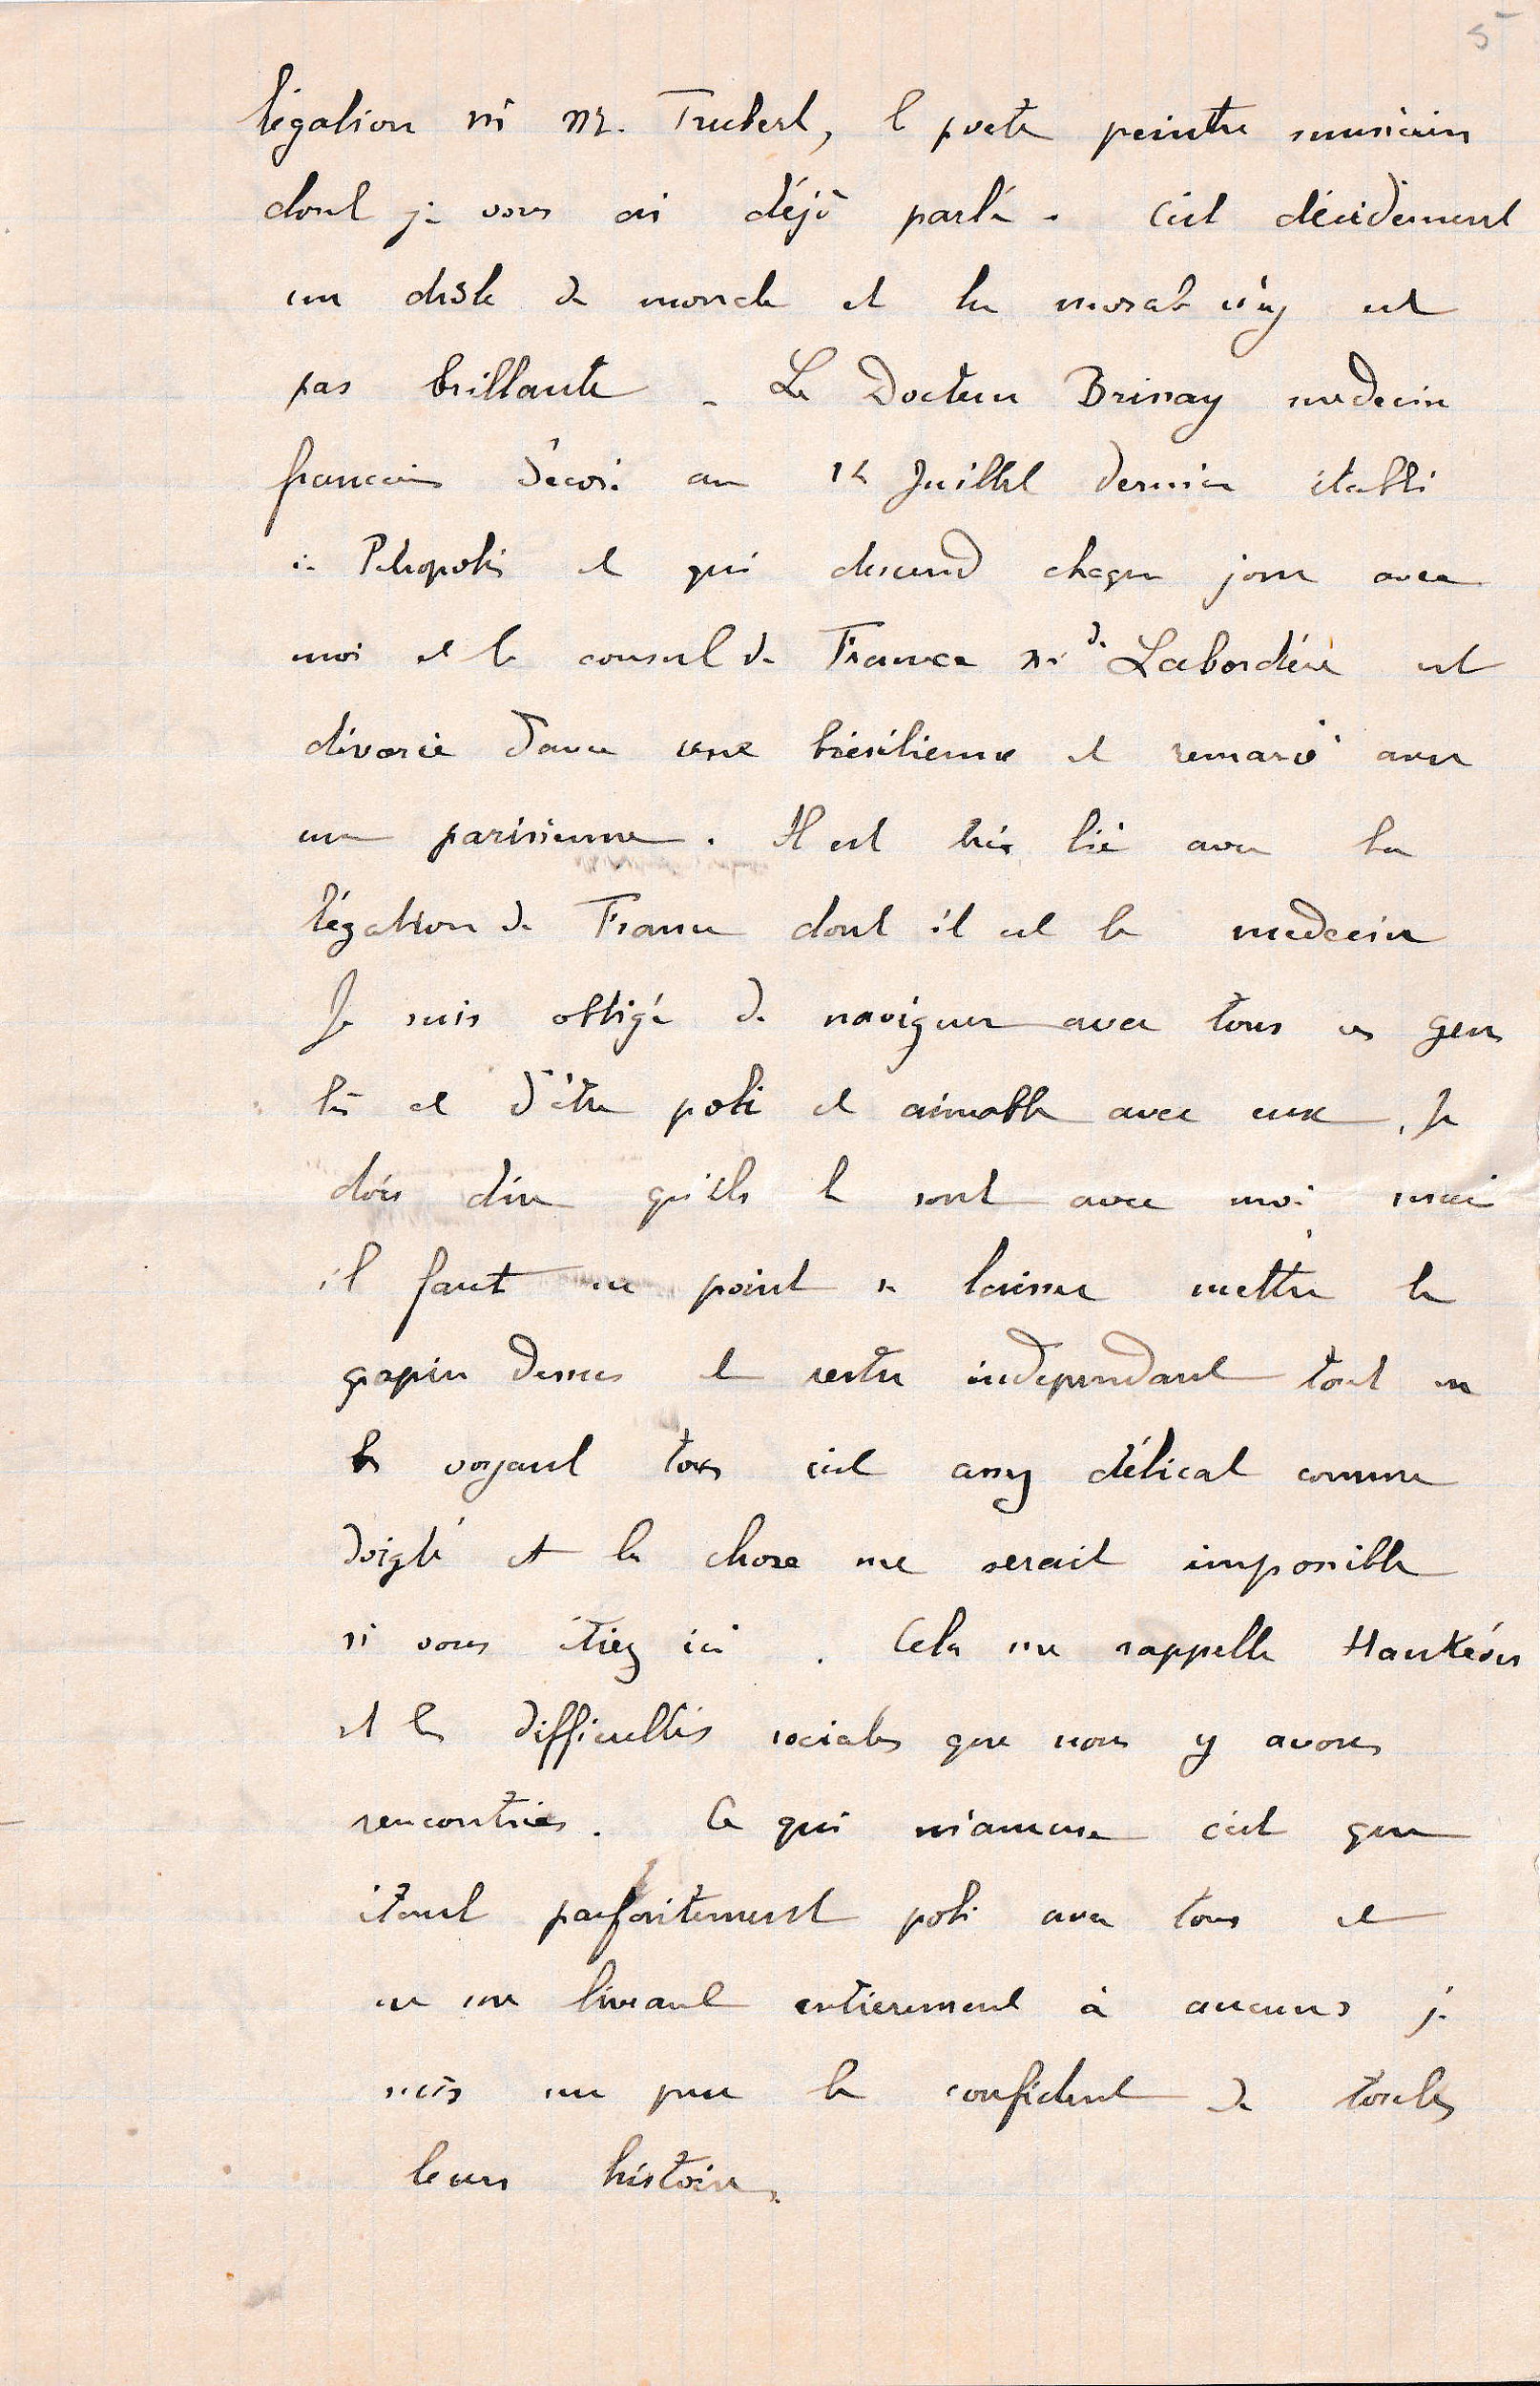 5
légation ni Mr. Trubert, le poète peintre musicien
dont je vous ai déjà parlé. C'est décidement
un drôle de monde et la morale n'y est
pas brillante. Le Docteur Brissay medecin
francais décoré au 14 Juillet dernier établi
à Petropolis et qui descend chaque jour avec
moi et le consul de France Mr de Labordère est
divorcé d'avec une brésilienne et remarié avec
une parisienne. Il est très lié avec la
légation de France dont il est le medecin
Je suis obligé de naviguer avec tous ces gens
là et d'être poli et aimable avec eux. Je
dois dire qu'ils le sont avec moi mais
il faut ne point se laisser mettre le
grapin dessus et rester independant tout en
les voyant tous c'est assez délicat comme
doigté et la chose me serait impossible
si vous étiez ici. Cela me rappelle Hankéou
et les difficultés sociales que nous y avons
rencontrées. Ce qui m'amuse c'est que
étant parfaitement poli avec tous et
ne me livrant entierement à aucuns je
suis un peu le confident de toutes
leurs histoires.